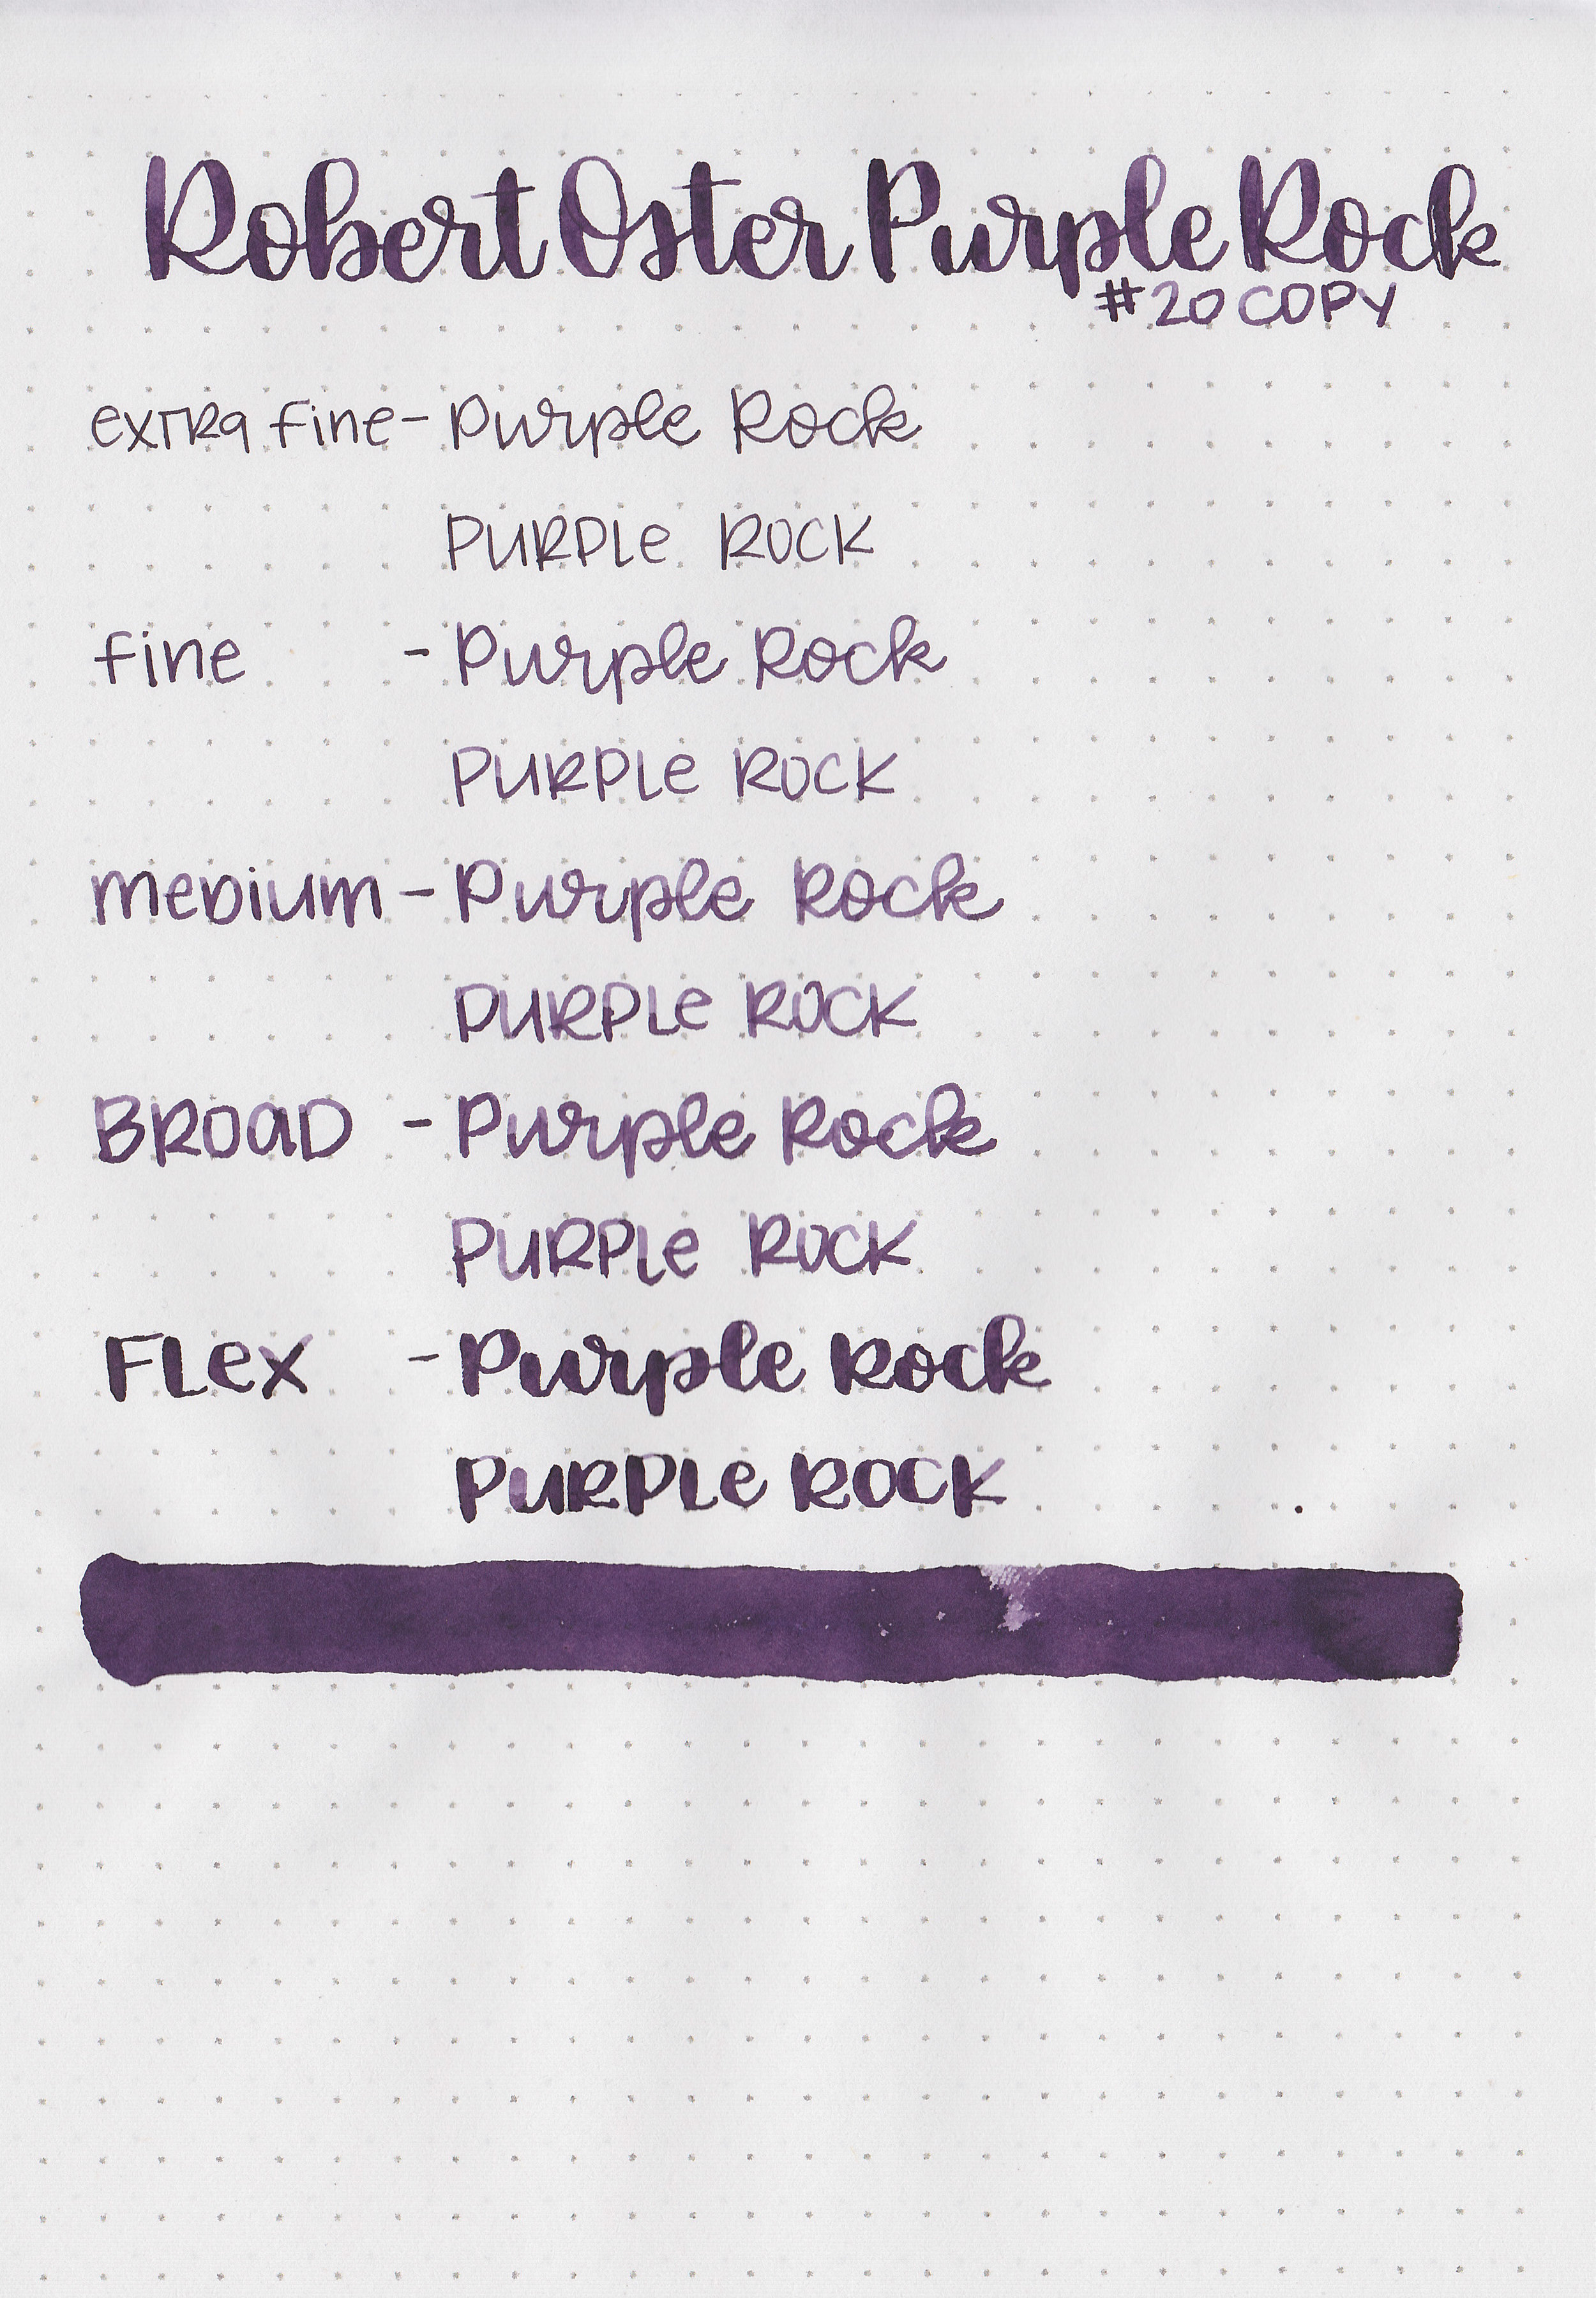 Robert Oster Purple Rock
#20 COPY
extra fine - Purple Rock
PURPLe ROCK
fine - Purple Rock
PURPLe ROCK
meDium - Purple Rock
PURPLe ROCK
BROaD - Purple Rock
PURPLe ROCK
FLex - Purple Rock
PURPLe ROCK